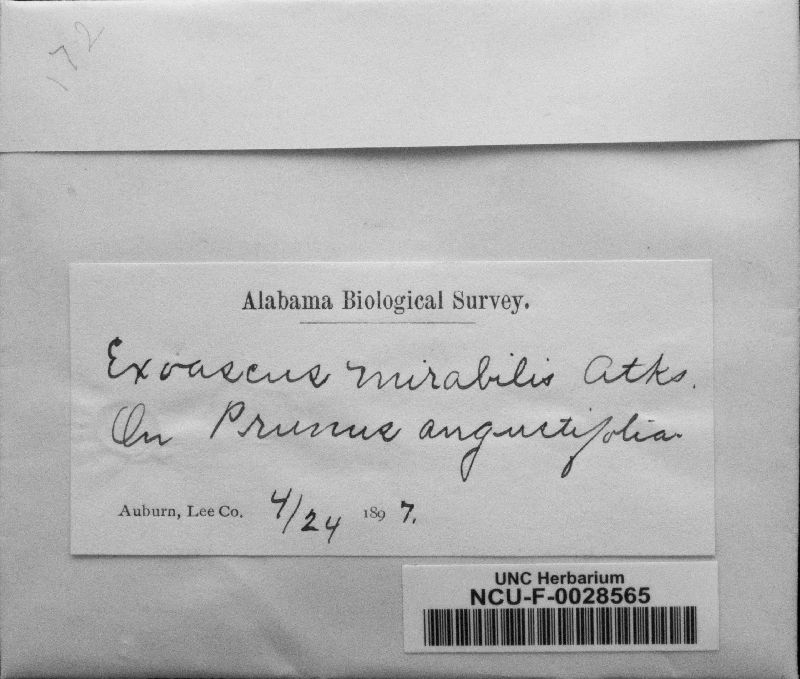 172
Alabama Biological Survey.
Exoascus mirabilis Atks.
On Prunus angustifolia.
Auburn, Lee Co. 4/24 1897.
UNC Herbarium
NCU-F-0028565